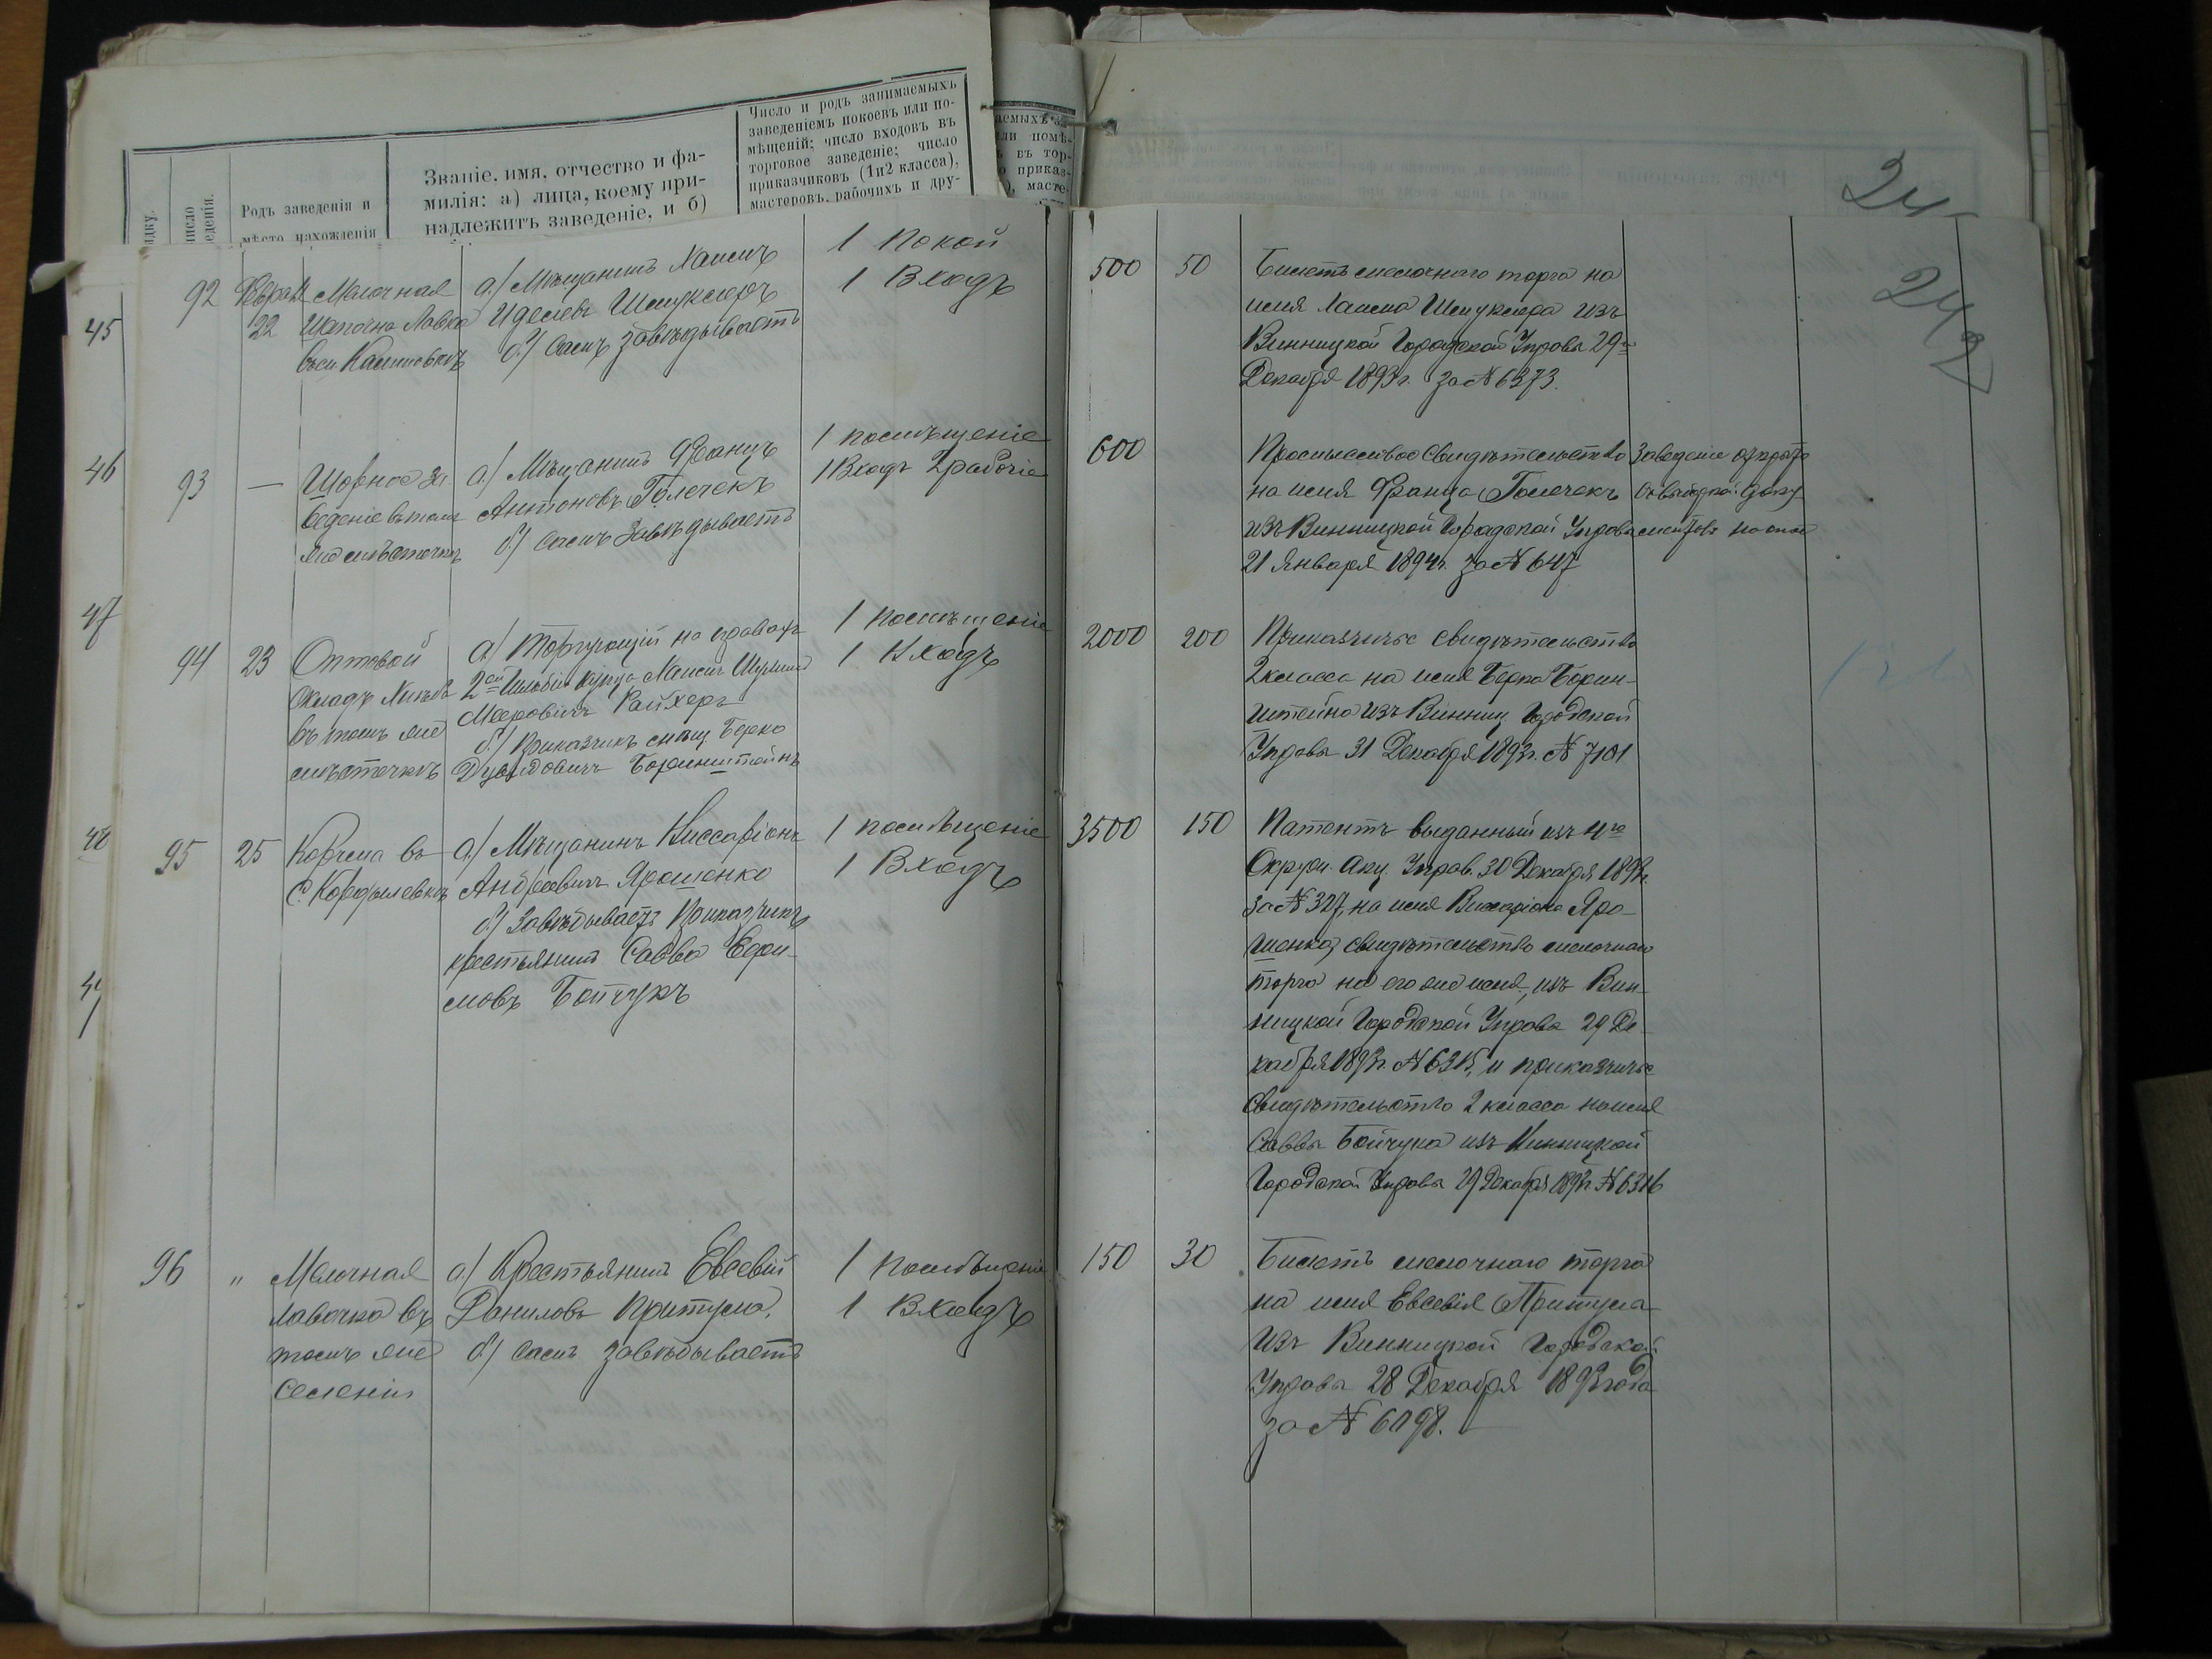 Число и родъ занимаемыхъ
заведеніемъ покоевъ или по-
мѣщеній; число входовъ въ
торговое заведеніе; число
приказчиковъ (1 и 2 класса),
мастеровъ, рабочихъ и дру-
Званіе, имя, отчество и фа-
милія: а) лица, коему при-
надлежитъ заведеніе, и б)
Родъ заведенія и
мѣсто нахожденія
число
аемыхъ за-
ли помѣ-
ъ въ тор-
о приказ-
), масте-
24
249
45
92 Феврал
22
Мелочная
Шапочна Лавка
въ м. Калиновкѣ
а) Мѣщанинъ Хаимъ
Иделевъ Шмуклеръ
б) Самъ завѣдываетъ
1 Покой
1 Входъ
500 50
Билетъ мелочнаго торга на
имя Хаима Шмуклера изъ
Винницкой Городской Управы 29го
Декабря 1893 г. за № 6373.
46
93 —
Шорное за
веденіе въ томъ
же мѣстечкѣ
а) Мѣщанинъ Францъ
Антоновъ Голечекъ
б) Самъ Завѣдываетъ
1 помѣщеніе
1 Входъ 2 рабочіе
600
Промысловое Свидѣтельство
на имя Франца Голечекъ
изъ Винницкой Городской Управы
21 Января 1894 г. за № 647
Заведеніе открыто
47
94 23
Оптовой
Складъ
въ томъ же
мѣстечкѣ
а) Торгующій на правахъ
2ой Гильдіи Купца
Мееровичъ Райхеръ
б) Приказчикъ Берко
Бориншт­ейнъ
1 помѣщеніе
1 Входъ
2000 200
Приказчичье свидѣтельство
2 класса на имя Берка Борин-
штейна изъ Винниц. Городской
Управы 31 Декабря 1893 г. № 7101
48
95 25
Корчма въ
с. Кордылевкѣ
а) Мѣщанинъ Виссаріонъ
Андреевичъ Ярошенко
б) Завѣдываетъ Приказчикъ
крестьянинъ Савва Ефи-
мовъ Бойчукъ
1 помѣщеніе
1 Входъ
3500 150
Патентъ выданный изъ 4го
Окружн. Акц. Управ. 30 Декабря 1893 г.
за № 327, на имя Виссаріона Яро-
шенка, свидѣтельство мелочнаго
торга на его же имя, изъ Вин-
ницкой Городской Управы 29 Де-
кабря 1893 г. № 6315, и приказчичье
Свидѣтельство 2 класса на имя
Саввы Бойчука изъ Винницкой
Городской Управы 29 Декабря 1893 г. № 6316
96 "
Мелочная
лавочка въ
томъ же
селеніи
а) Крестьянинъ Евсевій
Даниловъ Притула,
б) Самъ завѣдываетъ
1 помѣщеніе
1 Входъ
150 30
Билетъ мелочнаго торга
на имя Евсевія Притула
изъ Винницкой Городской
Управы 28 Декабря 1893 года
за № 6098.